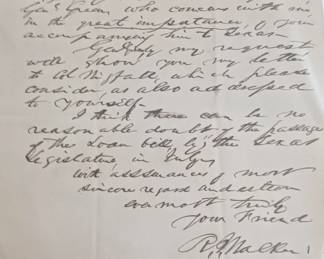 Genl Green, who concurs with me
in the great importance, of your
accompanying him to Texas.
my request
will show you my letter
to Col Wigfall, which please
consider, as also addressed
to yourself.
I think there can be no
reasonable doubt, of the passage
of the Loan bill, by the Texas
Legislature, in July,
with assurances of most
sincere regard and esteem
ever most truly
your Friend
R J Walker